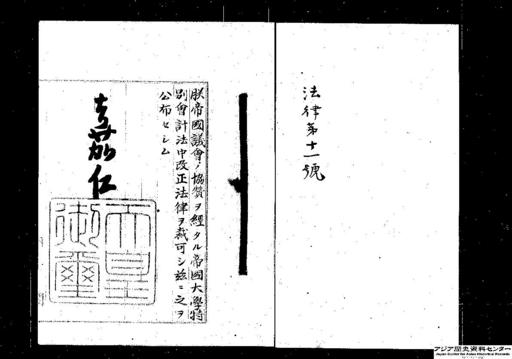 法律第十一號
朕帝國議會ノ協贊ヲ經タル帝國大學特
別會計法中改正法律ヲ裁可シ茲ニ之ヲ
公布セシム
嘉仁
天皇
御璽
アジア歴史資料センター
Japan Center for Asian Historical Records